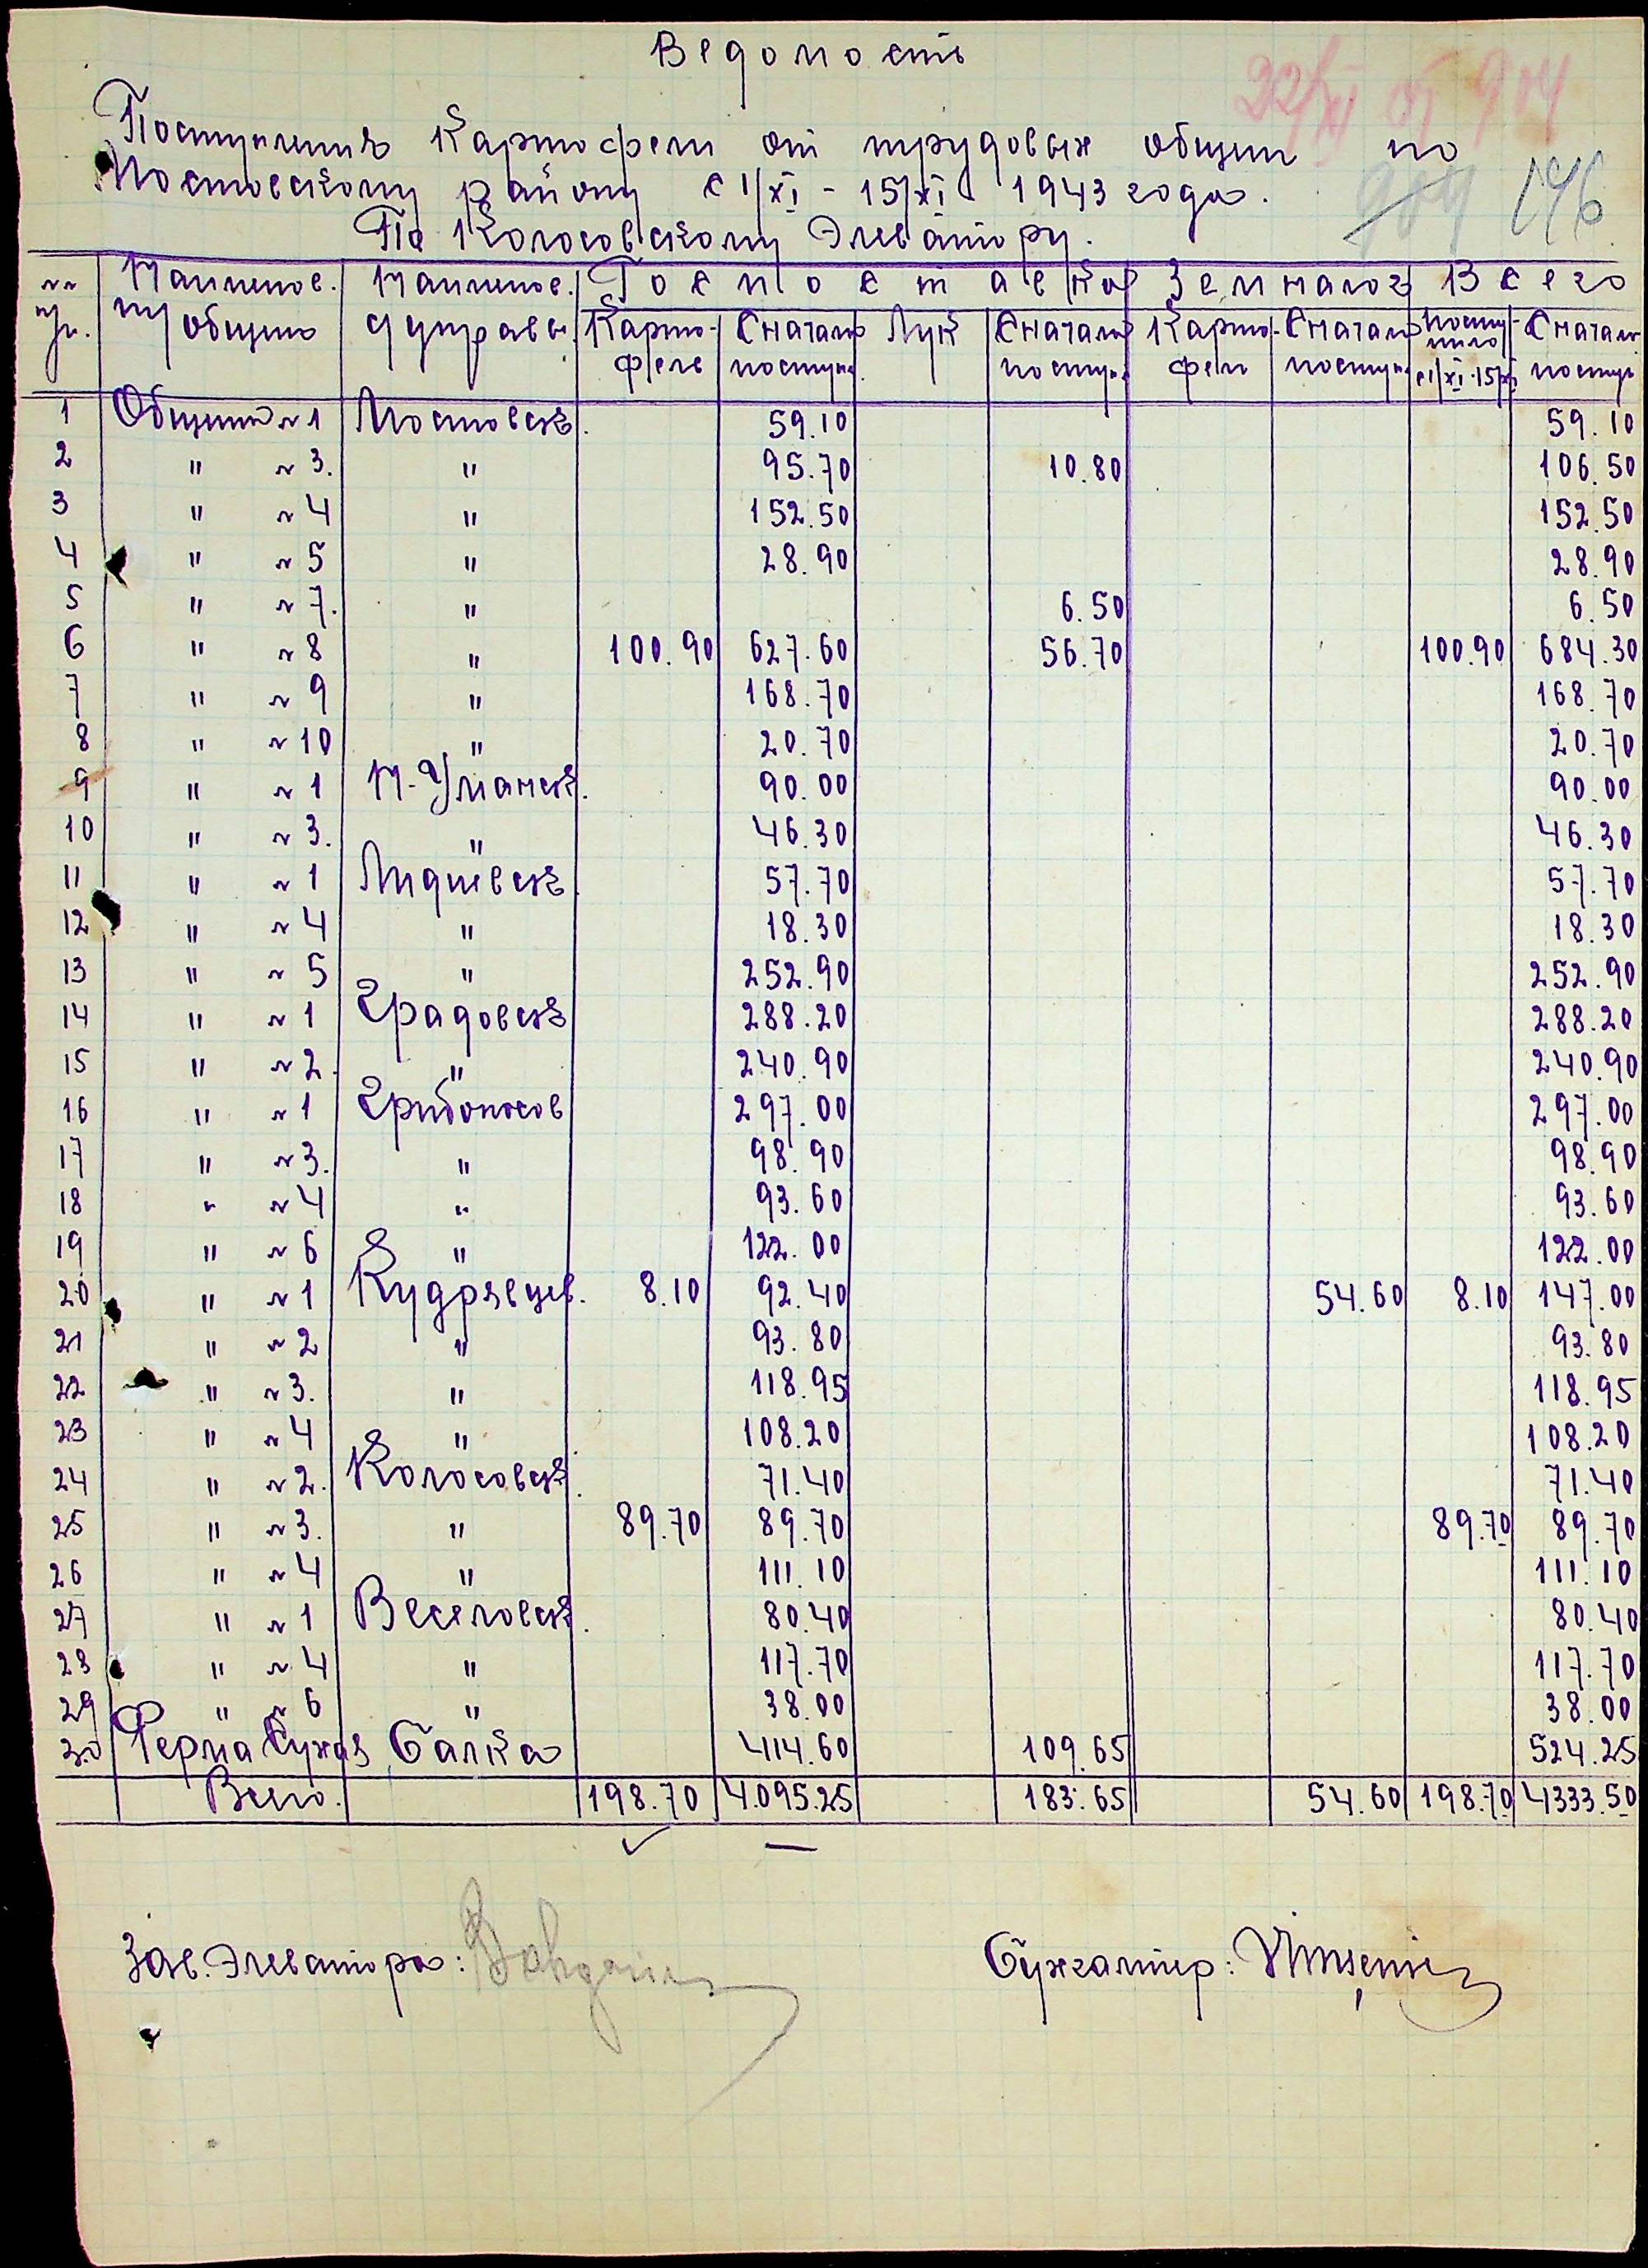 Ведомость
22/XI 05 904
Поступления Картофели от трудовых общин по
Мостовскому району с 1/XI - 15/XI 1943 года.
904 146
По Колосовскому Элеватору.
№№ п/п. Наименов. тр общин Наименов. с/управы Госпоставка Земналог Всего
Картофель Сначала поступ. Лук Сначала поступ. Картофели Сначала поступ. Поступило с 1/XI-15/XI Сначала поступ.
1 Община №1 Мостовск. 59.10 59.10
2 " №3. " 95.70 10.80 106.50
3 " №4 " 152.50 152.50
4 " №5 " 28.90 28.90
5 " №7. " 6.50 6.50
6 " №8 " 100.90 627.60 56.70 100.90 684.30
7 " №9 " 168.70 168.70
8 " №10 " 20.70 20.70
9 " №1 Н-Уманск. 90.00 90.00
10 " №3. " 46.30 46.30
11 " №1 Лидиевск. 57.70 57.70
12 " №4 " 18.30 18.30
13 " №5 " 252.90 252.90
14 " №1 Градовск 288.20 288.20
15 " №2. " 240.90 240.90
16 " №1 Грибоносов 297.00 297.00
17 " №3. " 98.90 98.90
18 " №4 " 93.60 93.60
19 " №6 " 122.00 122.00
20 " №1 Кудрявцев. 8.10 92.40 54.60 8.10 147.00
21 " №2 " 93.80 93.80
22 " №3. " 118.95 118.95
23 " №4 " 108.20 108.20
24 " №2. Колосовск. 71.40 71.40
25 " №3. " 89.70 89.70 89.70 89.70
26 " №4 " 111.10 111.10
27 " №1 Веселовск. 80.40 80.40
28 " №4 " 117.70 117.70
29 " №6 " 38.00 38.00
30 Ферма Сухая Балка 414.60 109.65 524.25
Всего. 198.70 4.095.25 183.65 54.60 198.70 4333.50
Зав. Элеватора:
Бухгалтер: